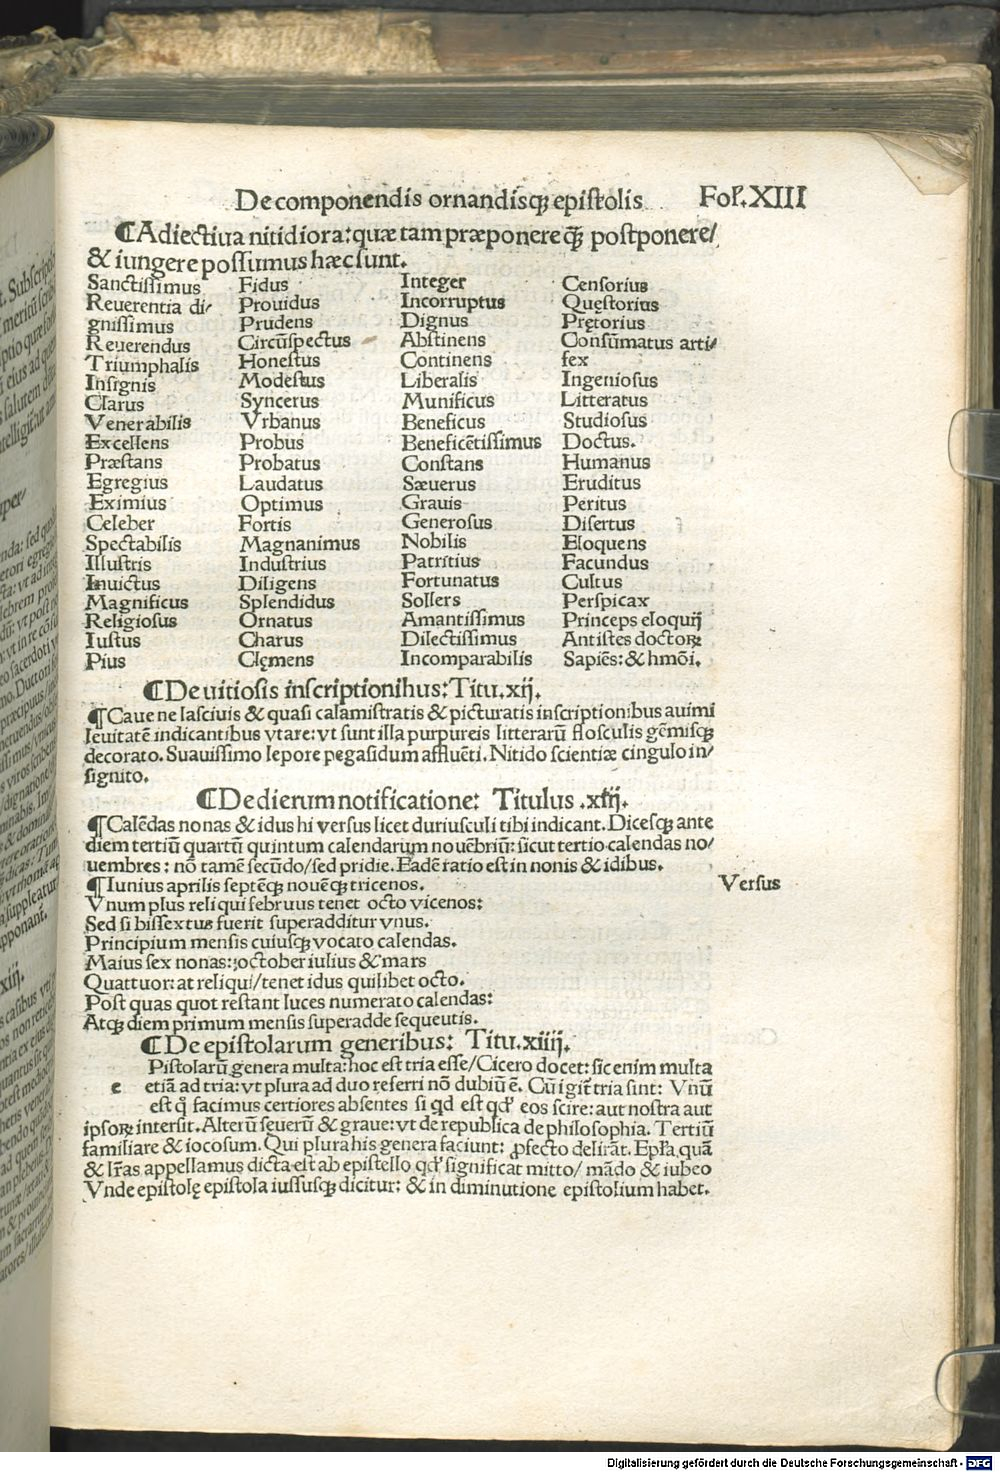 De componendis ornandisqꝫ epistolis Fol'.XIII
¶Adiectiua nitidiora: quæ tam præponere q̃ꝫ postponere/
& iungere possumus hæc sunt.
Sanctissimus
Reuerentia di/
gnissimus
Reuerendus
Triumphalis
Insignis
Clarus
Venerabilis
Excellens
Præstans
Egregius
Eximius
Celeber
Spectabilis
Illustris
Inuictus
Magnificus
Religiosus
Iustus
Pius
Fidus
Prouidus
Prudens
Circũspectus
Honestus
Modestus
Syncerus
Vrbanus
Probus
Probatus
Laudatus
Optimus
Fortis
Magnanimus
Industrius
Diligens
Splendidus
Ornatus
Charus
Clęmens
Integer
Incorruptus
Dignus
Abstinens
Continens
Liberalis
Munificus
Beneficus
Beneficẽtissimus
Constans
Sæuerus
Grauis
Generosus
Nobilis
Patritius
Fortunatus
Sollers
Amantissimus
Dilectissimus
Incomparabilis
Censorius
Quęstorius
Prętorius
Consũmatus arti/
fex
Ingeniosus
Litteratus
Studiosus
Doctus.
Humanus
Eruditus
Peritus
Disertus
Eloquens
Facundus
Cultus
Perspicax
Princeps eloquij
Antistes doctoꝝ
Sapiẽs: & hmõi.
¶De uitiosis inscriptionibus: Titu.xij.
¶Caue ne lasciuis & quasi calamistratis & picturatis inscriptionibus auimi
leuitatẽ indicantibus vtare: vt sunt illa purpureis litterarũ flosculis gẽmisqꝫ
decorato. Suauissimo lepore pegasidum affluẽti. Nitido scientiæ cingulo in/
signito.
¶De dierum notificatione: Titulus .xiij.
¶Calẽdas nonas & idus hi versus licet duriusculi tibi indicant. Dicesqꝫ ante
diem tertiũ quartũ quintum calendarum nouẽbriũ: sicut tertio calendas no/
uembres: nõ tamẽ secũdo/sed pridie. Eadẽ ratio est in nonis & idibus.
¶Iunius aprilis septẽqꝫ nouẽqꝫ tricenos. Versus
Vnum plus reliqui februus tenet octo vicenos:
Sed si bissextus fuerit superadditur vnus.
Principium mensis cuiusqꝫ vocato calendas.
Maius sex nonas: october iulius & mars
Quattuor: at reliqui/tenet idus quilibet octo.
Post quas quot restant luces numerato calendas:
Atqꝫ diem primum mensis superadde sequeutis.
¶De epistolarum generibus: Titu.xiiij.
e Pistolarũ genera multa: hoc est tria esse/Cicero docet: sic enim multa
etiã ad tria: vt plura ad duo referri nõ dubiũ ẽ. Cũ igit̃ tria sint: Vnũ
est q̃ facimus certiores absentes si qd est qd' eos scire: aut nostra aut
ipsoꝝ intersit. Alterũ seuerũ & graue: vt de republica de philosophia. Tertiũ
familiare & iocosum. Qui plura his genera faciunt: ꝓfecto delirãt. Epl'a quã
& lr̃as appellamus dicta est ab epistello qd' significat mitto/ mãdo & iubeo
Vnde epistolę epistola iussusqꝫ dicitur: & in diminutione epistolium habet.
Digitalisierung gefördert durch die Deutsche Forschungsgemeinschaft - DFG